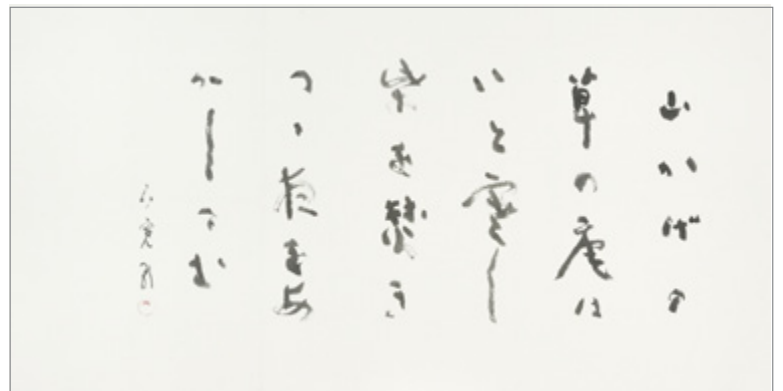 山かげの
草の庵は
いと寒し
柴を き
つゝ夜をあ
かしてむ
良寛